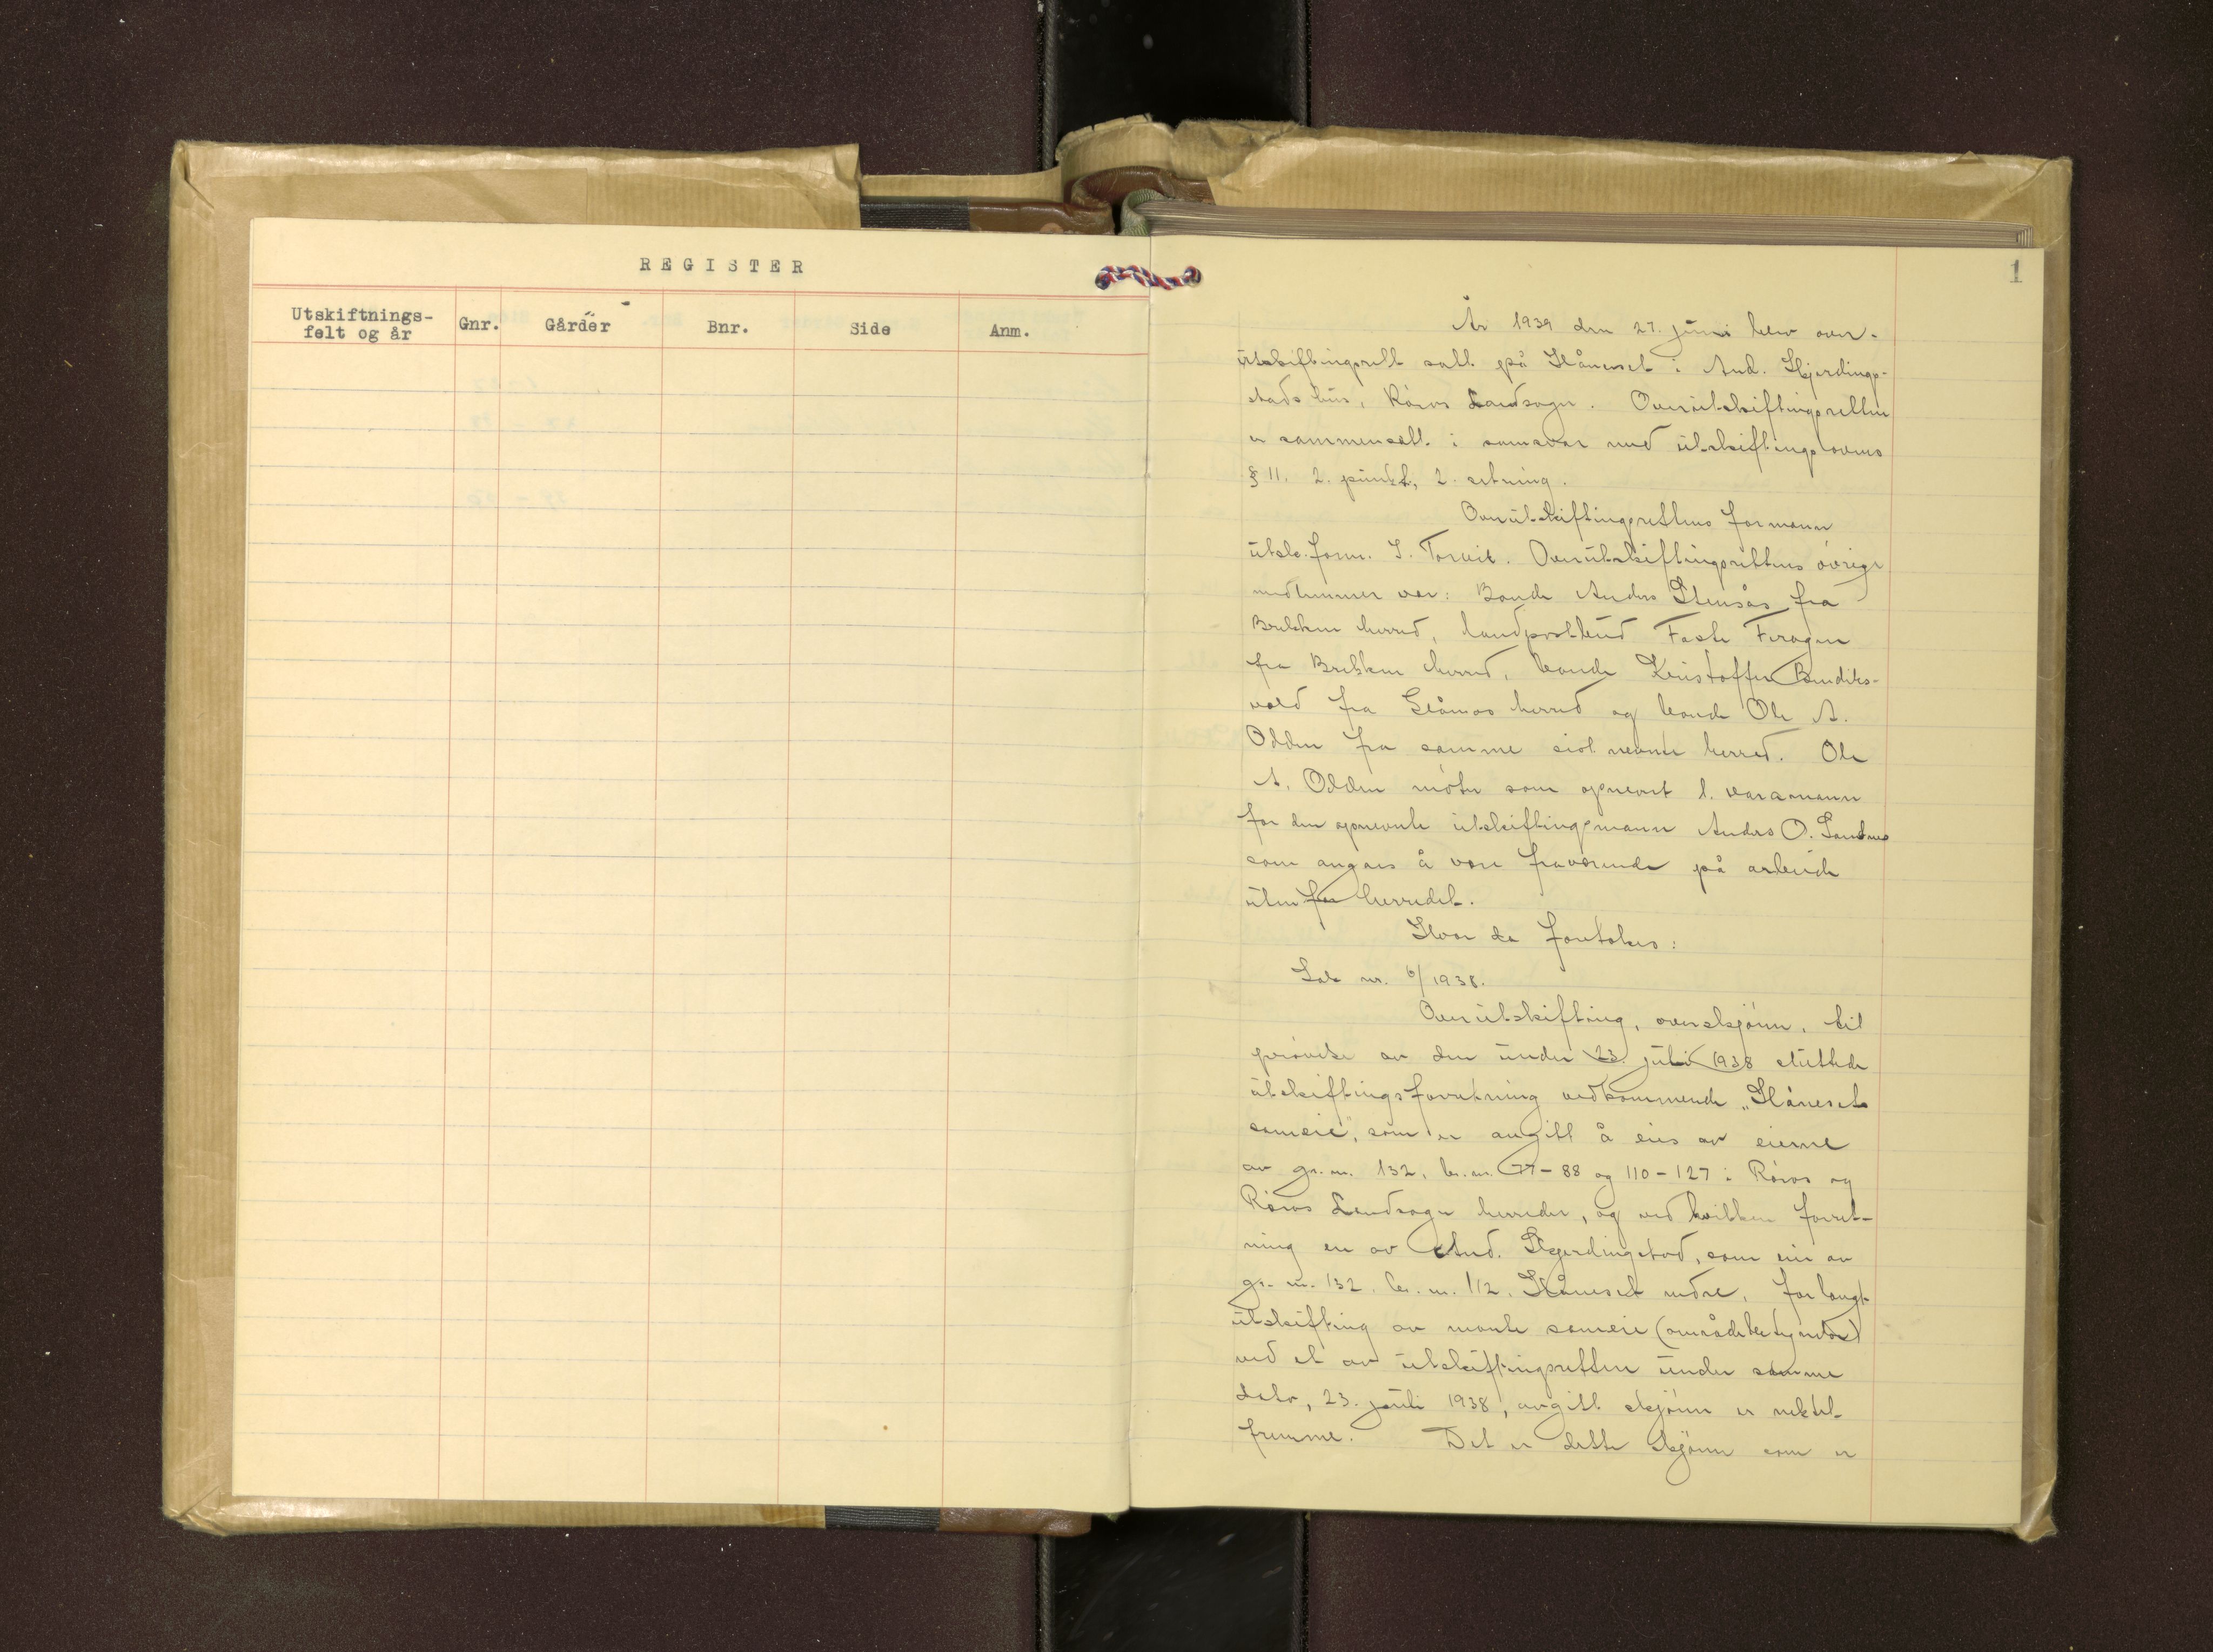 REGISTER
Utskiftnings-
felt og år
Gnr.
Gårder
Bnr.
Side
Anm.
1
År 1939 den 27. juni blev over-
utskiftingsrett satt på Håneset i And. Skjerdings-
stads hus, Røros Landsogn. Overutskiftingsretten
er sammensatt i samsvar med utskiftingslovens
§ 11. 2. punkt, 2. setning.
Overutskiftingsrettens formann
utsk.form. S. Torvik. Overutskiftingsrettens øvrige
medlemmer var: Bonde Anders Stensås fra
Brekken herred, landpostbud Faste Feragen
fra Brekken herred, bonde Kristoffer Bendiks-
vold fra Glåmos herred og bonde Ole A.
Odden fra samme sist nevnte herred. Ole
A. Odden møter som opnevnt 1. varamann
for den opnevnte utskiftingsmann Anders O. Sandnes
som angaes å være fraværende på arbeide
utenfor herredet.
Hvor da foretokes:
Sak nr. 6/1938.
Overutskifting, overskjønn, til
prøvelse av den under 23. juli 1938 sluttede
utskiftingsforretning vedkommende „Håneset
sameie", som er angitt å eies av eierne
av gr.nr. 132, br.nr. 77-88 og 110-127 i Røros og
Røros Landsogn herreder, og ved hvilken forret-
ning en av And. Skjerdingstad, som eier av
gr.nr. 132, br.nr. 112, Håneset nedre, forlangt
utskifting av nevnte sameie (område betegnelse)
ved et av utskiftingsretten under samme
dato, 23. juli 1938, avgitt skjønn er nektet
fremme. Det er dette skjønn som er